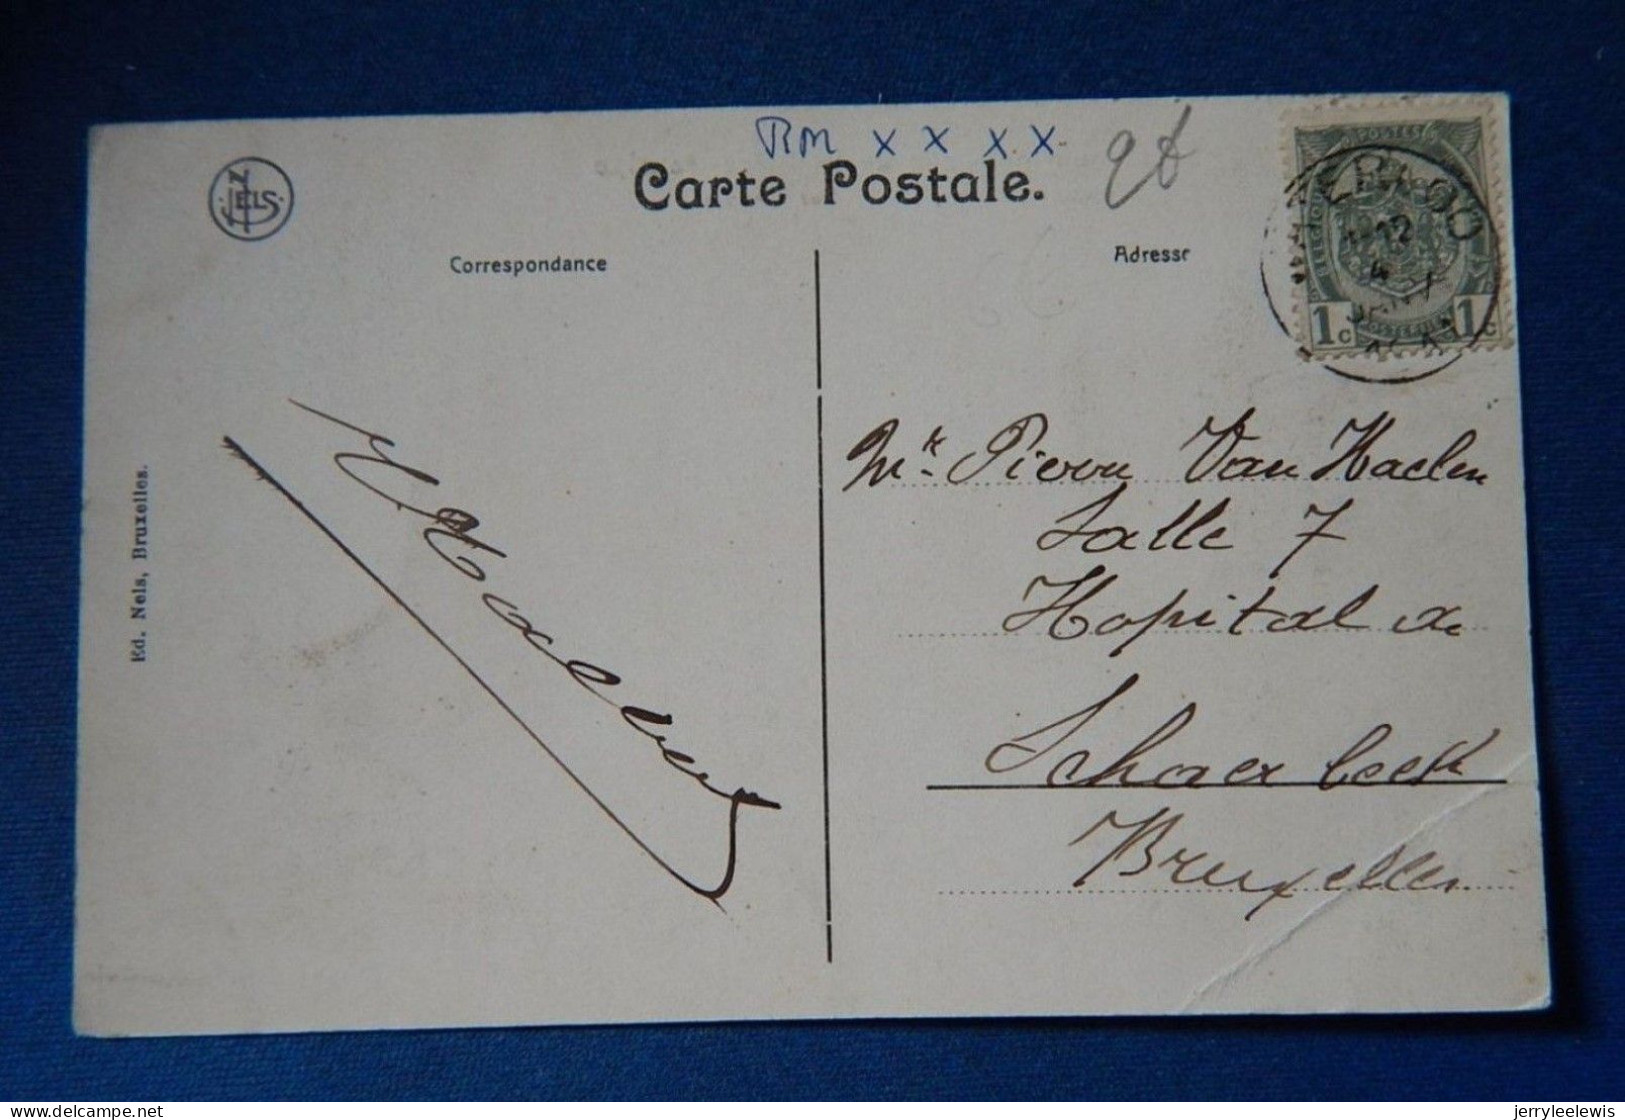 RM x x x x
Carte Postale.
NELS.
Correspondance
Adresse
POSTES
BELGIQUE
12
4
JANV
1c 1c
Mr. Pierre Van Haelen
Salle 7
Hopital de
Schaerbeek
Bruxelles
Ed. Nels, Bruxelles.
delcampe.net
jerryleelewis